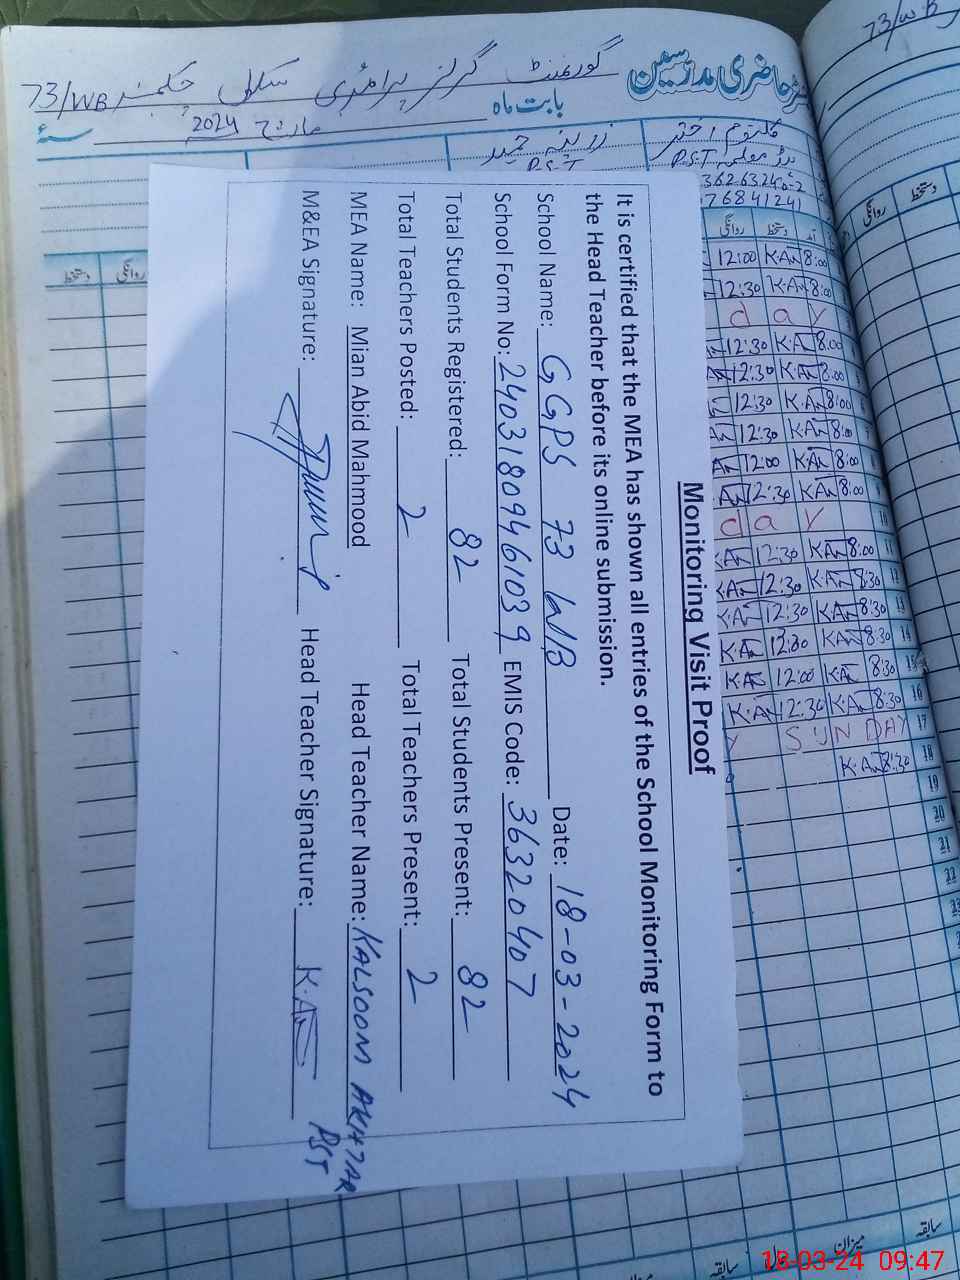 73/W.B
رجسٹر حاضری مدرسین گورنمنٹ گرلز پرائمری سکول چکنمبر 73/WB
بابت ماہ مارچ 2024 سنہ
کلثوم اختر
ہیڈ معلمہ P.S.T
زرینہ حمید
P.S.T
دستخط روانگی
روانگی دستخط آمد
12:00 K.A 8:00
12:30 K.A 8:00
d a y
12:30 K.A 8:00
12:30 K.A 8:00
12:30 K.A 8:00
12:30 K.A 8:00
12:00 K.A 8:00
12:30 K.A 8:00
d a y
K.A 12:30 K.A 8:00
K.A 12:30 K.A 8:30
K.A 12:30 K.A 8:30
K.A 12:30 K.A 8:30
K.A 12:00 K.A 8:30
K.A 12:30 K.A 8:30
Y SUNDAY
K.A 8:30
Monitoring Visit Proof
It is certified that the MEA has shown all entries of the School Monitoring Form to
the Head Teacher before its online submission.
School Name: GGPS 73 WB Date: 18-03-2024
School Form No: 24031809461039 EMIS Code: 36320407
Total Students Registered: 82 Total Students Present: 82
Total Teachers Posted: 2 Total Teachers Present: 2
MEA Name: Mian Abid Mahmood Head Teacher Name: KALSOOM AKHTAR
PST
M&EA Signature: Head Teacher Signature: K.A
سابقہ میزان سابقہ
18-03-24 09:47